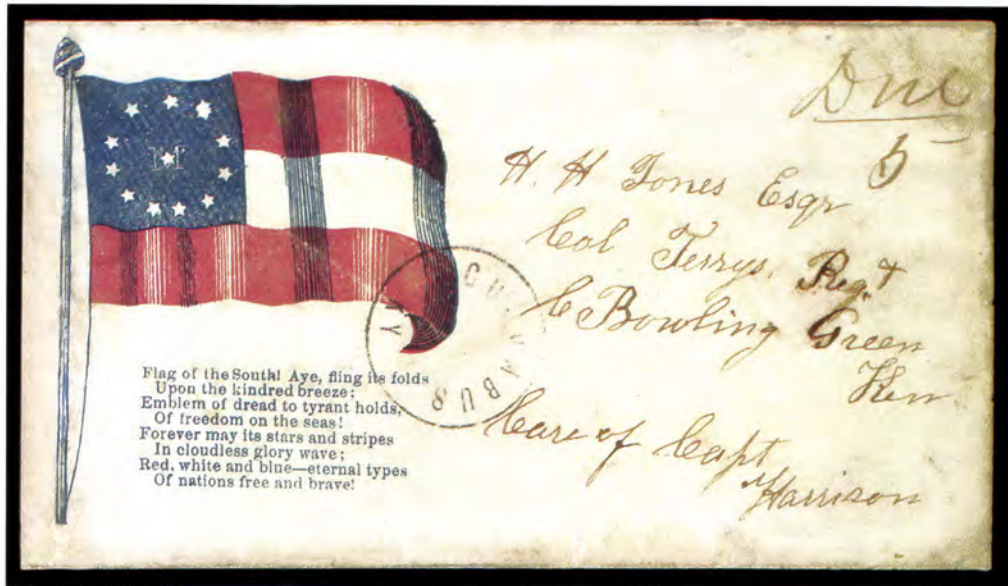 Due
5
H. H Jones Esqr
Col Terrys. Regt
Bowling Green
Ken
Care of Capt
Harrison
COLUMBUS KY
Flag of the South! Aye, fling its folds
Upon the kindred breeze;
Emblem of dread to tyrant holds,
Of freedom on the seas!
Forever may its stars and stripes
In cloudless glory wave;
Red, white and blue—eternal types
Of nations free and brave!